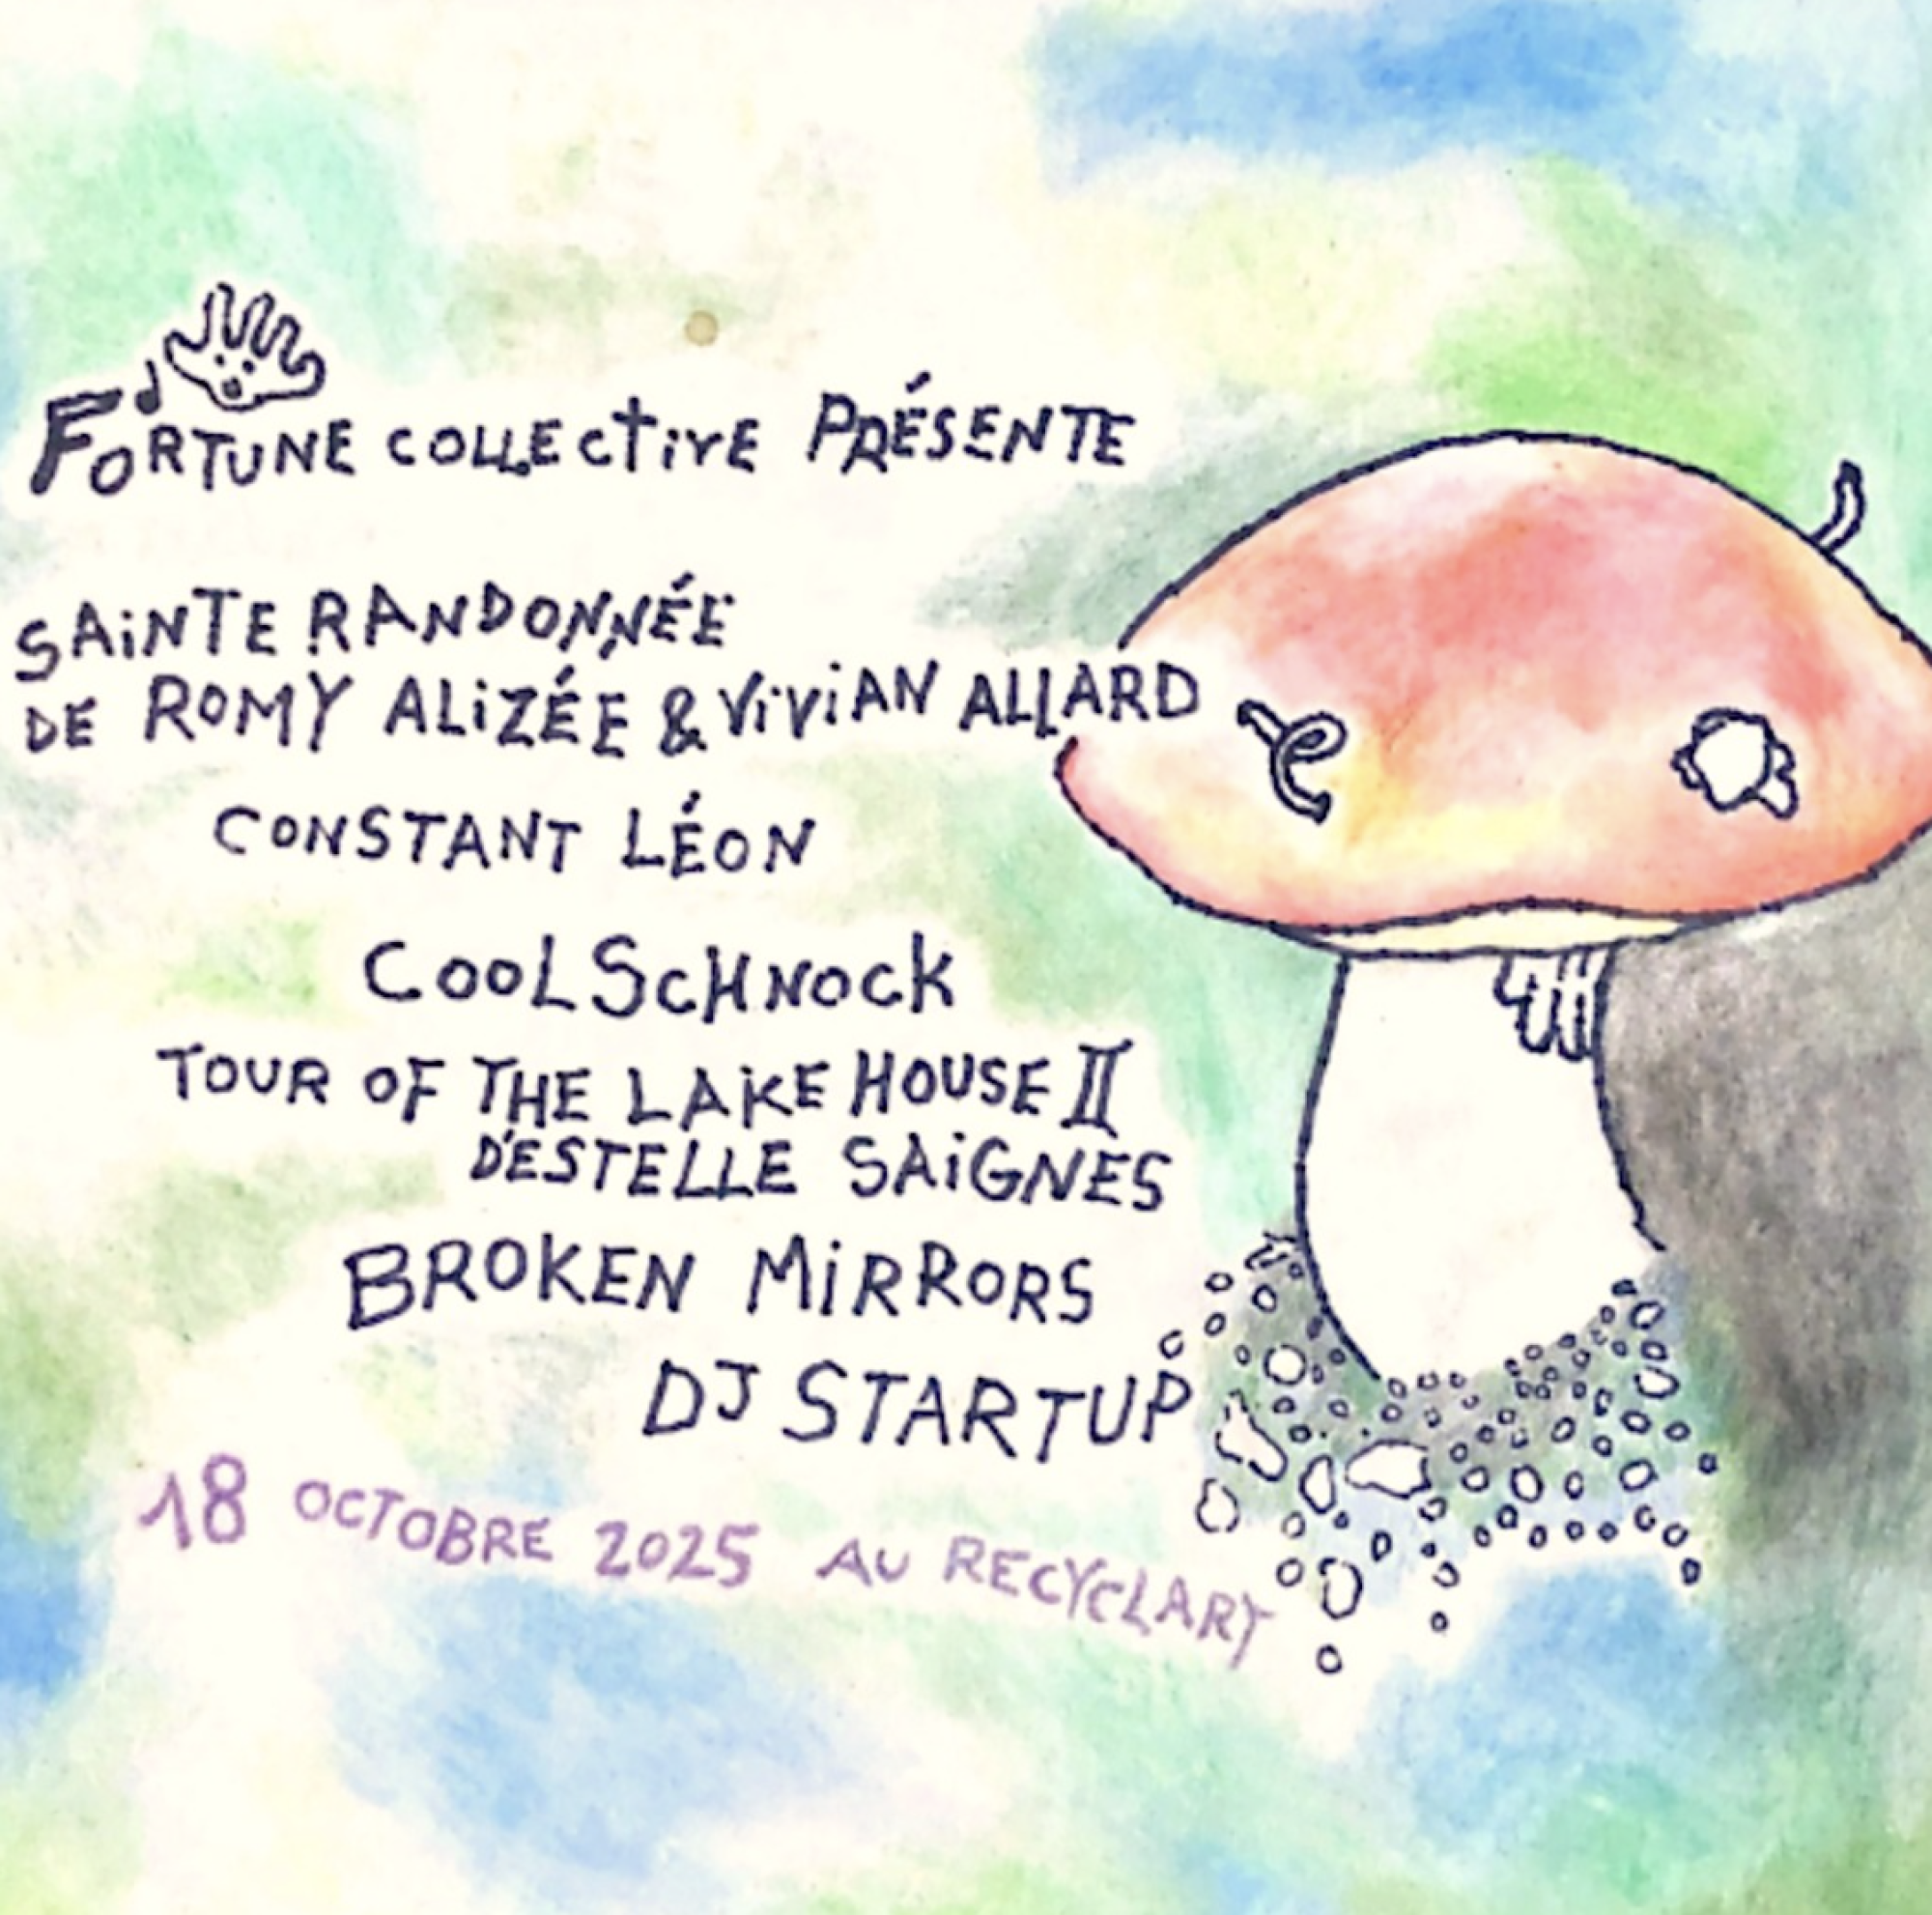 FORTUNE COLLECTIVE PRÉSENTE
SAiNTE RANDONNÉE
DE ROMY ALiZÉE & ViViAN ALLARD
CONSTANT LÉON
COOL SCHNOCK
TOUR OF THE LAKE HOUSE II
D'ESTELLE SAiGNES
BROKEN MiRRORS
DJ STARTUP
18 OCTOBRE 2025 AU RECYCLART